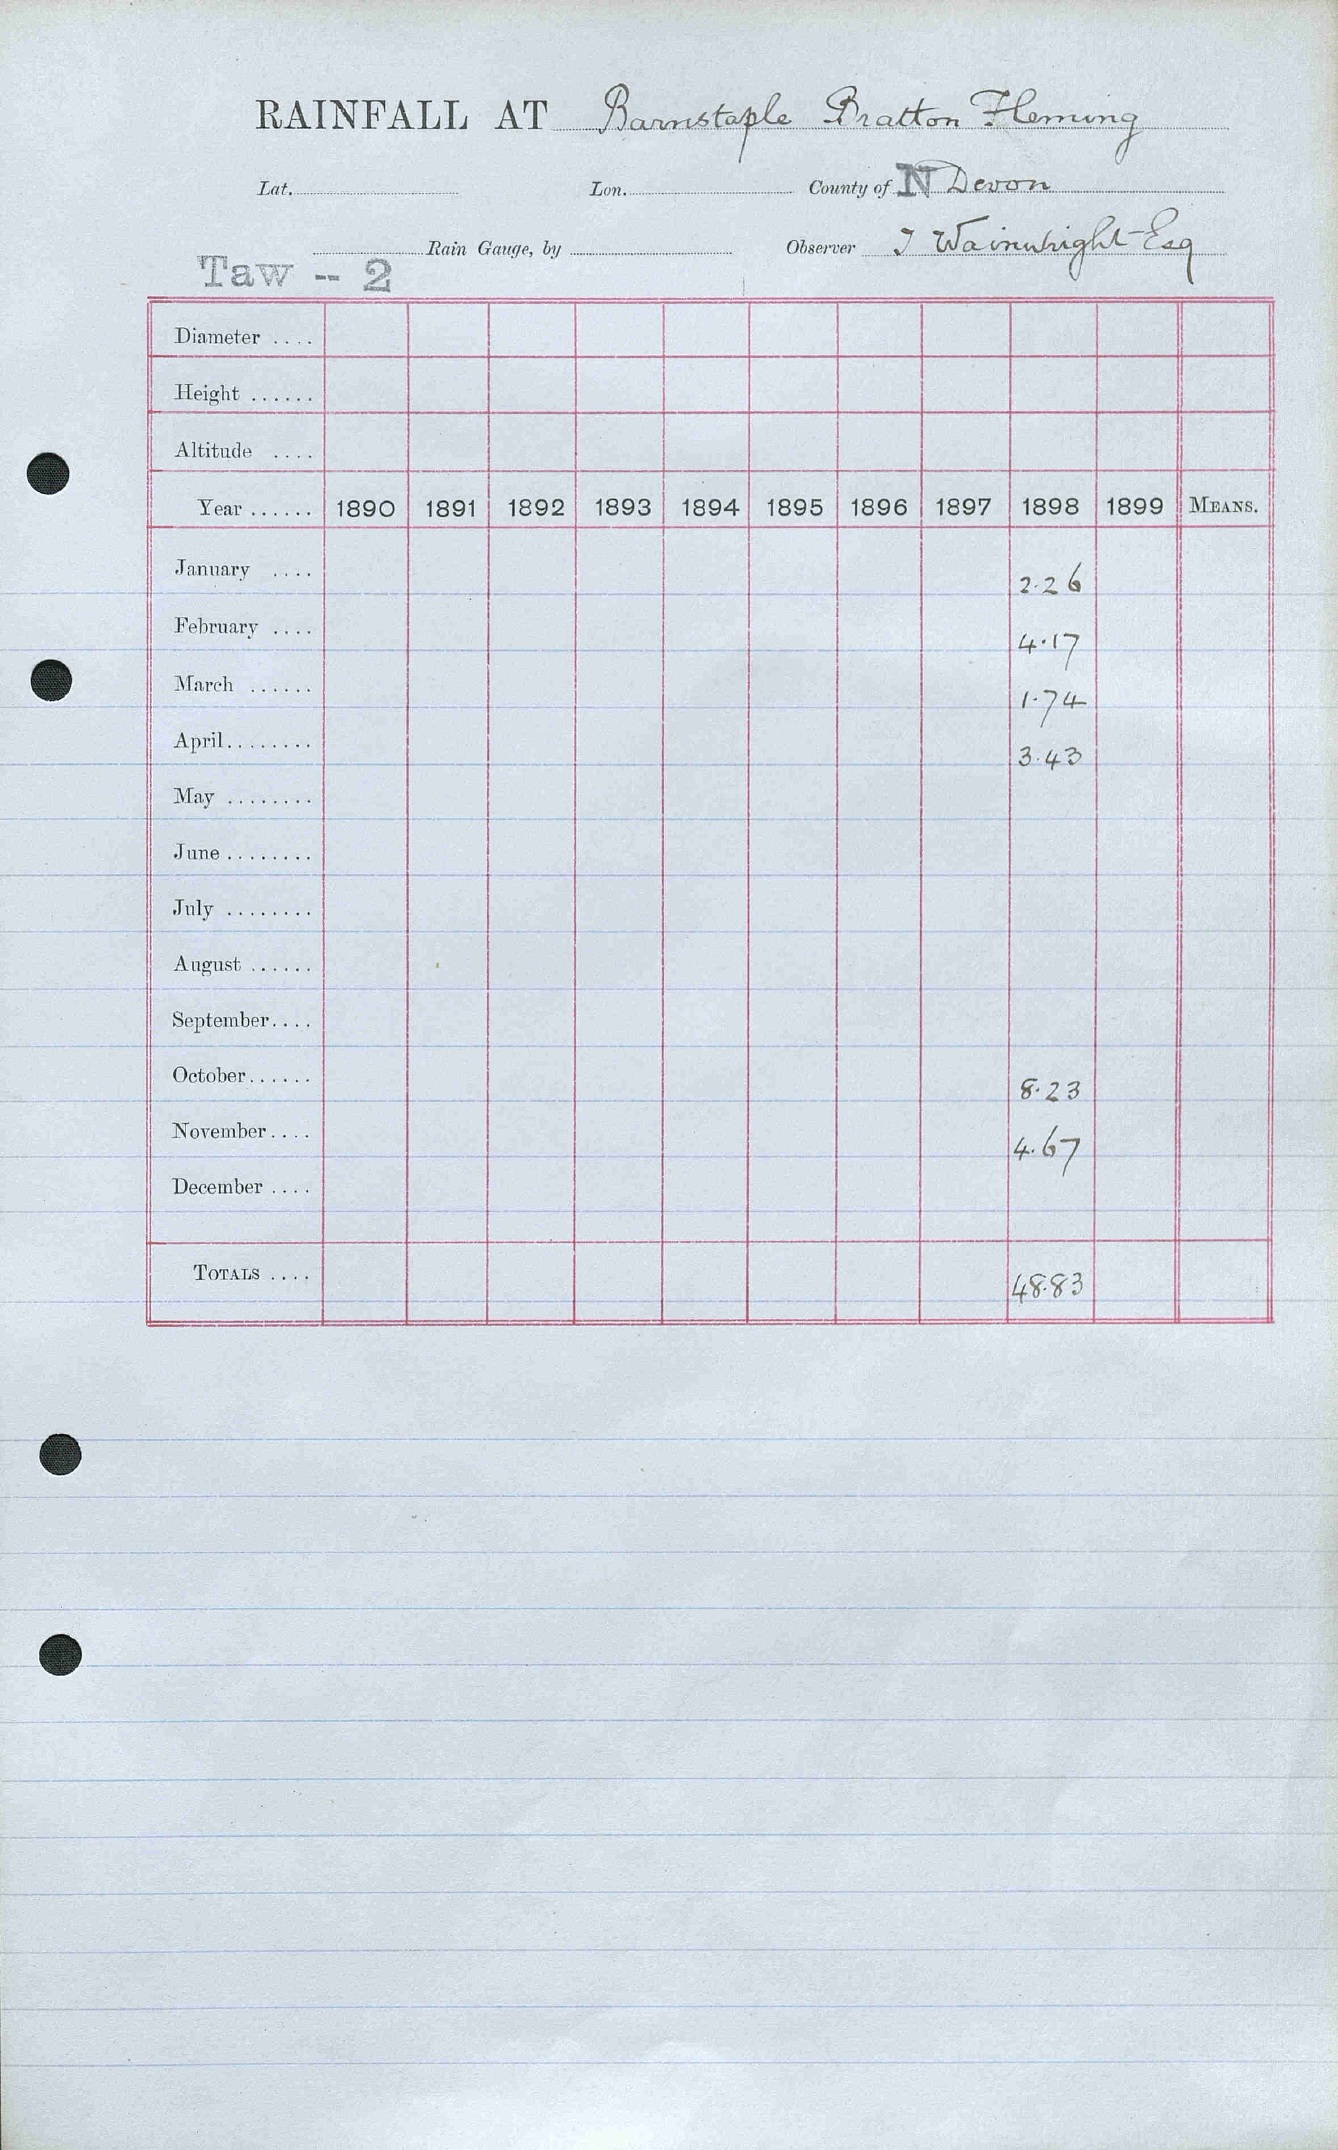 RAINFALL AT Barnstaple Bratton Fleming
Lat. Lon. County of N Devon
Rain Gauge, by Observer T Wainwright Esq
Taw -- 2
Diameter ....
Height ......
Altitude ....
Year ...... 1890 1891 1892 1893 1894 1895 1896 1897 1898 1899 MEANS.
January .... 2.26
February .... 4.17
March ...... 1.74
April........ 3.43
May ........
June ........
July ........
August ......
September....
October...... 8.23
November.... 4.67
December ....
TOTALS .... 48.83